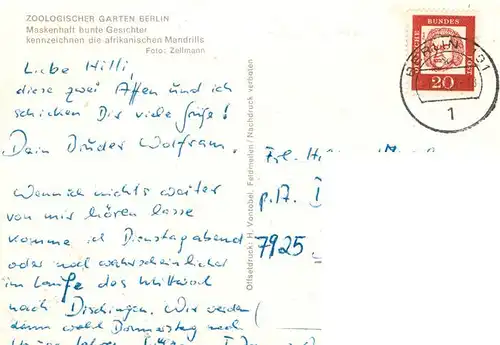 ZOOLOGISCHER GARTEN BERLIN
Maskenhaft bunte Gesichter
kennzeichnen die afrikanischen Mandrills
Foto: Zellmann
Liebe Hilli,
diese zwei Affen und ich
schicken Dir viele Grüße!
Dein Bruder Wolfram.
Wenn ich nichts weiter
von mir hören lasse
komme ich Dienstagabend
oder noch wahrscheinlicher
im Laufe des Mittwoch
nach Dischingen. Wir werden
dann wohl Donnerstag nach
Offsetdruck: H. Vontobel, Feldmeilen/Nachdruck verboten
DEUTSCHE BUNDESPOST
20
BERLIN
1
Frl.
p.A.
7925